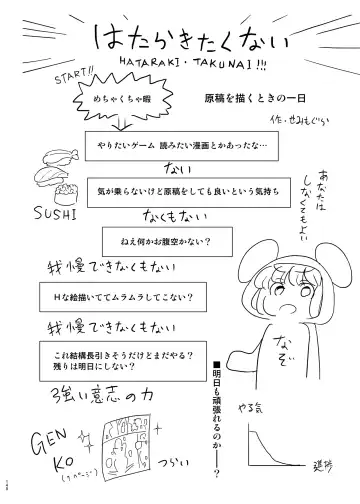 はたらきたくない
HATARAKI・TAKUNAI!!!
START!!
めちゃくちゃ暇
原稿を描くときの一日
作.せみもぐら
やりたいゲーム 読みたい漫画とかあったな…
ない
気が乗らないけど原稿をしても良いという気持ち
なくもない
ねえ何かお腹空かない?
我慢できなくもない
Hな絵描いててムラムラしてこない?
我慢できなくもない
これ結構長引きそうだけどまだやる?
残りは明日にしない?
強い意志の力
SUSHI
あなたは
しなくてもよい
なぞ
■明日も頑張れるのか――?
やる気
進捗
GEN
KO
(1ページ)
つらい